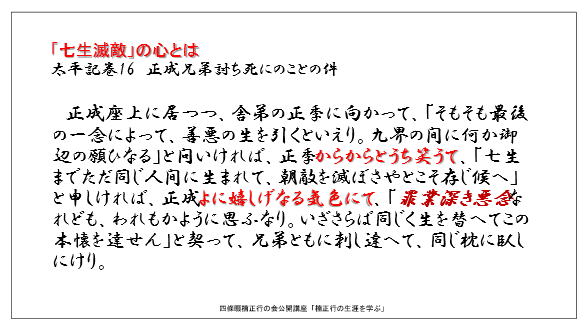 「七生滅敵」の心とは
太平記巻16　正成兄弟討ち死にのことの件
正成座上に居つつ、舎弟の正季に向かって、「そもそも最後
の一念によって、善悪の生を引くといえり。九界の間に何か御
辺の願ひなる」と問いければ、正季からからとうち笑うて、「七生
までただ同じ人間に生まれて、朝敵を滅ぼさやとこそ存じ候へ」
と申しければ、正成よに嬉しげなる気色にて、「罪業深き悪念な
れども、われもかように思ふなり。いざさらば同じく生を替へてこの
本懐を達せん」と契って、兄弟ともに刺し違へて、同じ枕に臥し
にけり。
四條畷楠正行の会公開講座「楠正行の生涯を学ぶ」